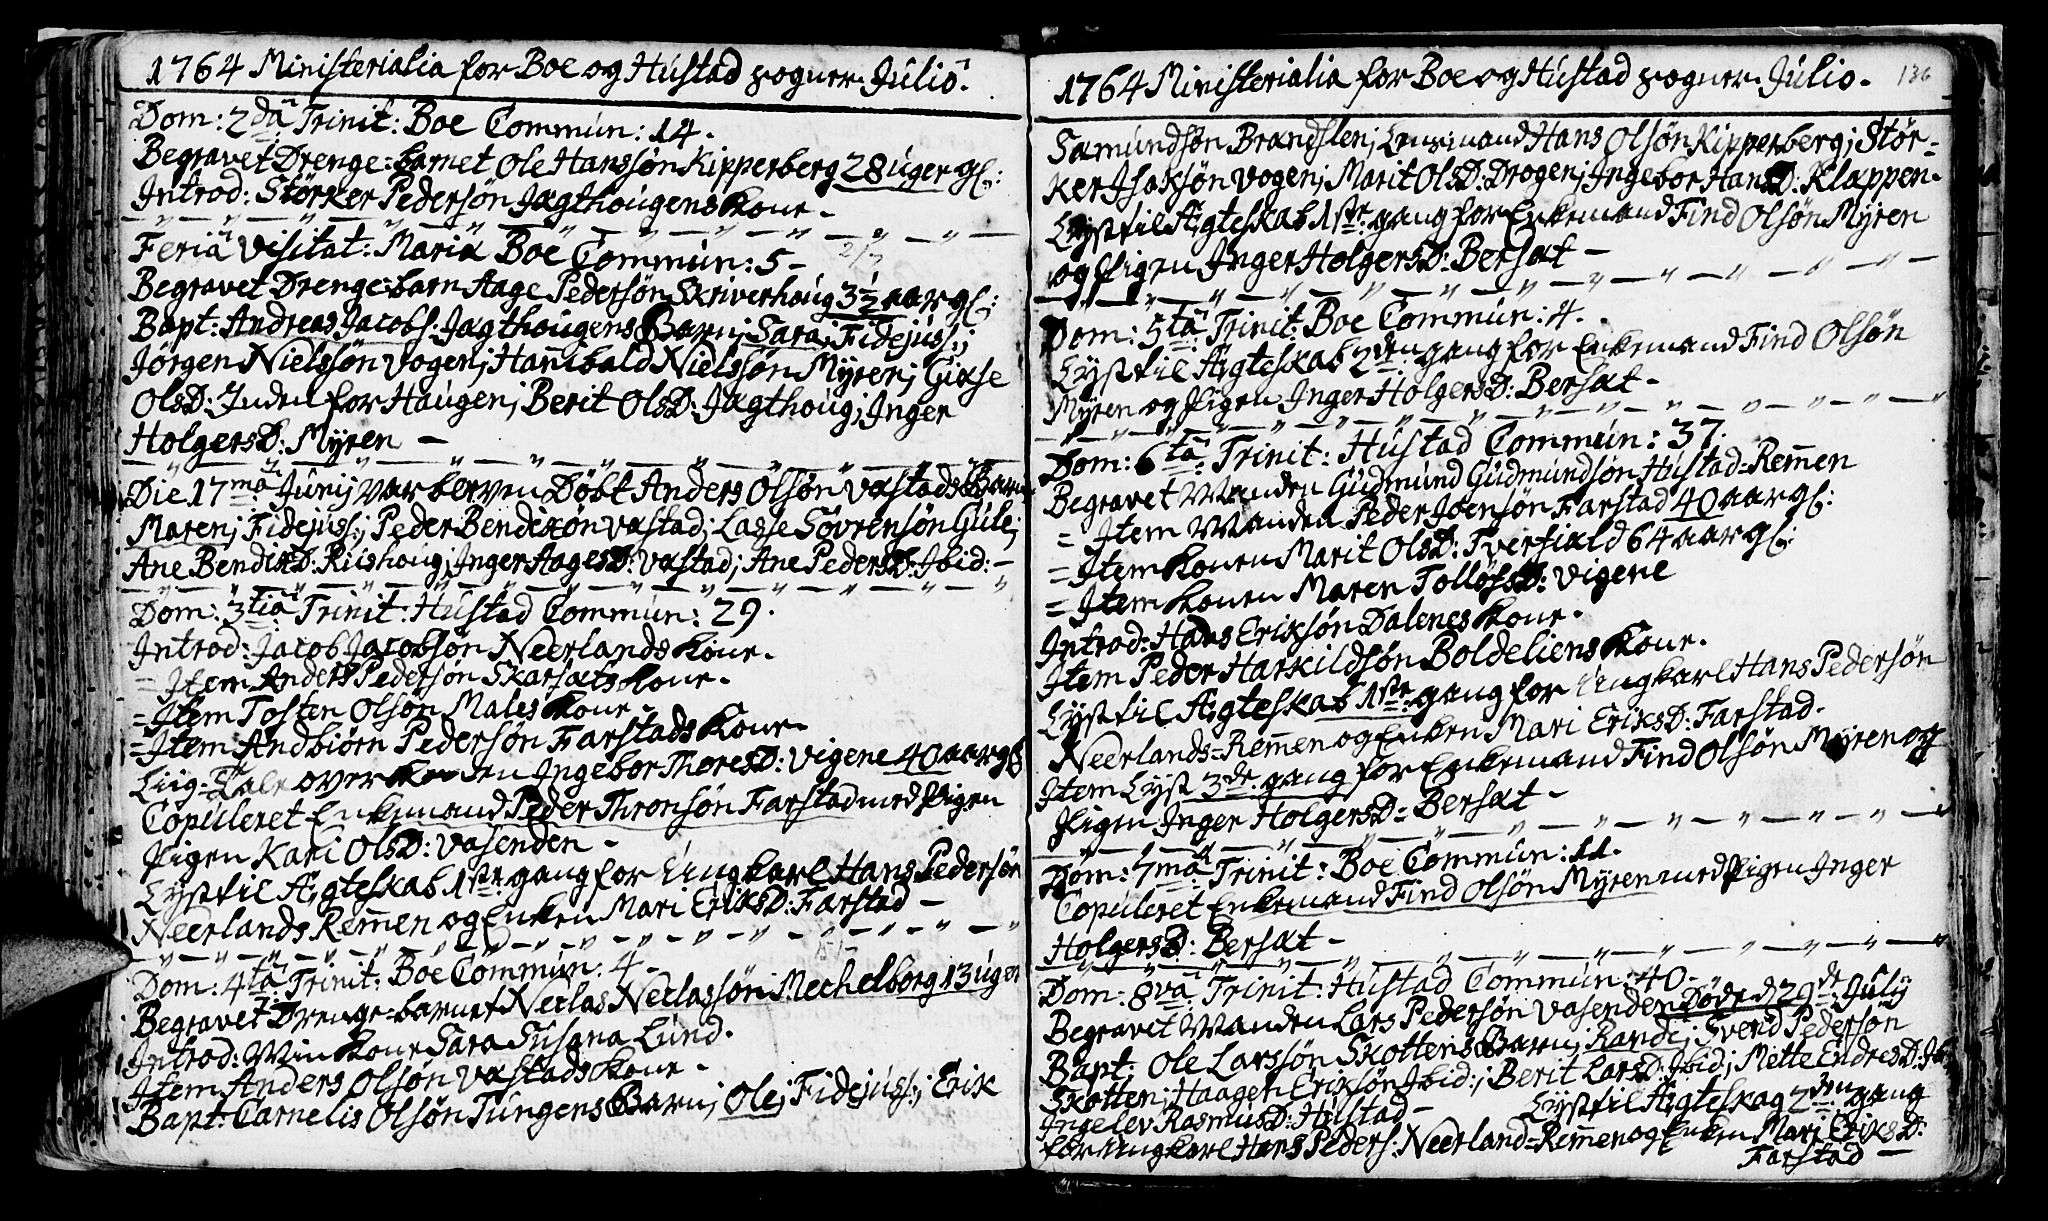 1764 Ministerialia for Boe og Hustad sogner. Julio.
Dom: 2da Trinit: Boe Commun: 14.
Begravet Drenge-barnet Ole Hanssøn Kipperberg 28 uger gl:
Introd: Størker Pedersøn Jagthougens Kone -
Feria Visitat: Maria Boe Commun: 5 - 2/7
Begravet Drenge-barn Aage Pedersøn Skriverhoug 3 1/2 aar gl:
Bapt: Andreas Jacobs: Jagthougens Barn; Sara; Fidejuss:;
Jørgen Nielssøn Vogen; Hanibald Nielssøn Myren; Giøse
OlsD: Inden for Haugen; Berit OlsD: Jagthoug; Inger
HolgersD: Myren -
Die 17ma Junij var berven Døbt Anders Olsøn Vastads Barn
Maren; Fidejuss:; Peder Bendixøn Vastad; Lasse Søvrensøn Gule;
Ane BendixD: Riishoug; Inger AagesD: Vastad; Ane PedersD: Ibid: -
Dom: 3tia Trinit: Hustad Commun: 29.
Introd: Jacob Jacobsøn Neerlands Kone.
= Item Anders Pedersøn Skarsæts Kone.
= Item Tosten Olsøn Males Kone -
= Item Andbiørn Pedersøn Farstads Kone.
Liig-Tale over Konen Ingebor ThoresD: Vigene 40 aar gl:
Copuleret Enkemand Peder Thronsøn Farstad med Pigen
Pigen Kari OlsD: Vasenden -
Lyst til Ægteskab 1ste gang for Ungkarl Hans Pedersøn
Neerlands Remen og Enken Mari EriksD: Farstad -
Dom: 4ta Trinit: Boe Commun: 4 -
Begravet Drenge-barnet Neclas Neclassøn Mechelborg 13 uger
Introd: Min Kone Sara Susana Lund.
Item Anders Olsøn Vastads Kone -
Bapt: Carnelis Olsøn Tungens Barn; Ole; Fidejuss:; Erik
1764 Ministerialia for Boe og Hustad sogner. Julio. 136
Samundsøn Brandslen; Lensmand Hans Olsøn Kipperberg; Stør-
ker Isaksøn Vogen; Marit OlsD: Drogen; Ingebor HansD: Klappen.
Lyst til Ægteskab 1ste gang for Enkemand Find Olsøn Myren
og Pigen Inger HolgersD: Bersæt -
Dom: 5ta Trinit: Boe Commun: 4.
Lyst til Ægteskab 2den gang for Enkemand Find Olsøn
Myren og Pigen Inger HolgersD: Bersæt -
Dom: 6ta Trinit: Hustad Commun: 37.
Begravet Manden Gudmund Gudmundsøn Hustad-Remen
= Item Manden Peder Joensøn Farstad 40 aar gl:
= Item Konen Marit OlsD: Tverfiald 64 aar gl:
= Item Konen Maren TolløfsD: Vigene
Introd: Hans Eriksøn Dalenes Kone.
Item Peder Harkildsøn Boldeliens Kone.
Lyst til Ægteskab 1ste gang for Ungkarl Hans Pedersøn
Neerlands-Remen og Enken Mari EriksD: Farstad.
Item Lyst 3de gang for Enkemand Find Olsøn Myren og
Pigen Inger HolgersD: Bersæt -
Dom: 7ma Trinit: Boe Commun: 11.
Copuleret Enkemand Find Olsøn Myren med Pigen Inger
HolgersD: Bersæt -
Dom: 8va Trinit: Hustad Commun: 40 -
Begravet Manden Lars Pedersøn Vasenden Døde d 29de July
Bapt: Ole Larssøn Skottens Barn; Randi; Svend Pedersøn
Skotten; Haagen Eriksøn Ibid:; Berit LarsD: Ibid; Mette EndresD: Ib:
Ingelev RasmusD: Hustad - Lyst til Ægteskag 2den gang
for Ungkarl Hans Peders: Neerland-Remen og Enken Mari EriksD:
Farstad -